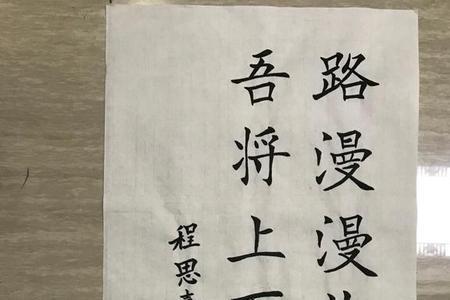 路漫漫
吾将上
程思